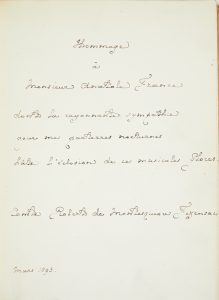 Hommage
à
Monsieur Anatole France
dont la rayonnante sympathie
pour mes parterres nocturnes
hâta l'éclosion de ces musicales Flores.
Comte Robert de Montesquiou Fezensac
mars 1893.